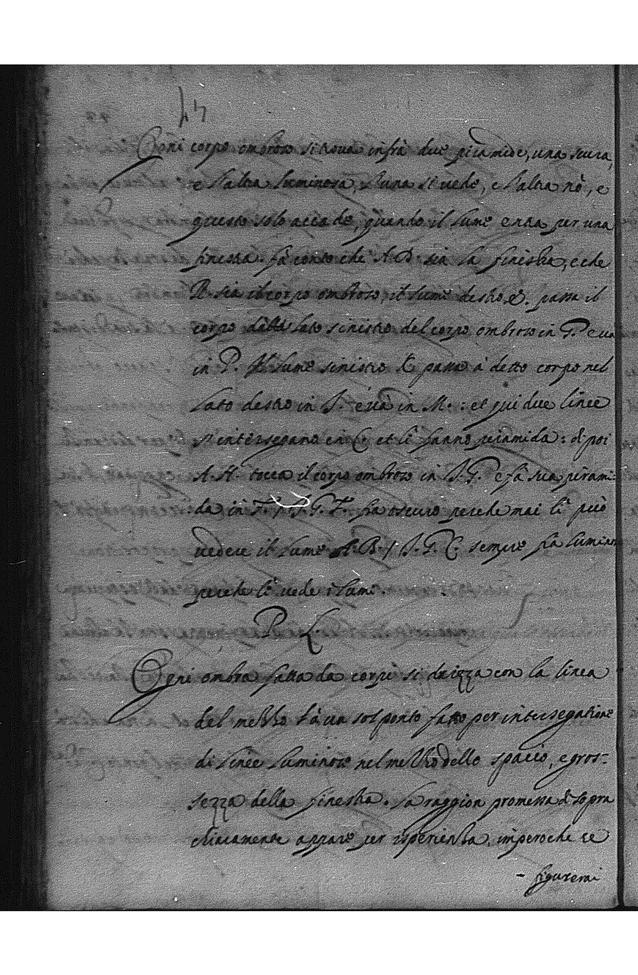 Ogni corpo ombroso si trova infrà due piramide, una scura,
e l'altra luminosa, l'una si vede, e l'altra nò, e
questo solo accade, quando il lume entra per una
finestra. fà conto che A B. sia la finestra, e che
R sia il corpo ombroso, il lume destro, passa il
corpo dalla lato sinistro del corpo ombroso in G. e va
in P. Il lume sinistro passa à detto corpo nel
lato destro in I. e và in M.: et qui due linee
s'intersegano in C. et lì fanno piramida: di poi
A tocca il corpo ombroso in I. G. e fà sua pirami-
da in F. I. G. F. fia oscuro perche mai lì può
vedere il lume A. B. / I. G. C. sempre fia lumin
perche lì vede i lumi
Ogni ombra fatta da corpi si drizza con la linea
del mezzo à un sol ponto fatto per intersegatione
di linee luminose nel mezzo dello spacio, e gros-
sezza della finestra. La raggion promessa di sopra
chiaramente appare per isperienza, imperoche se
- figurerai